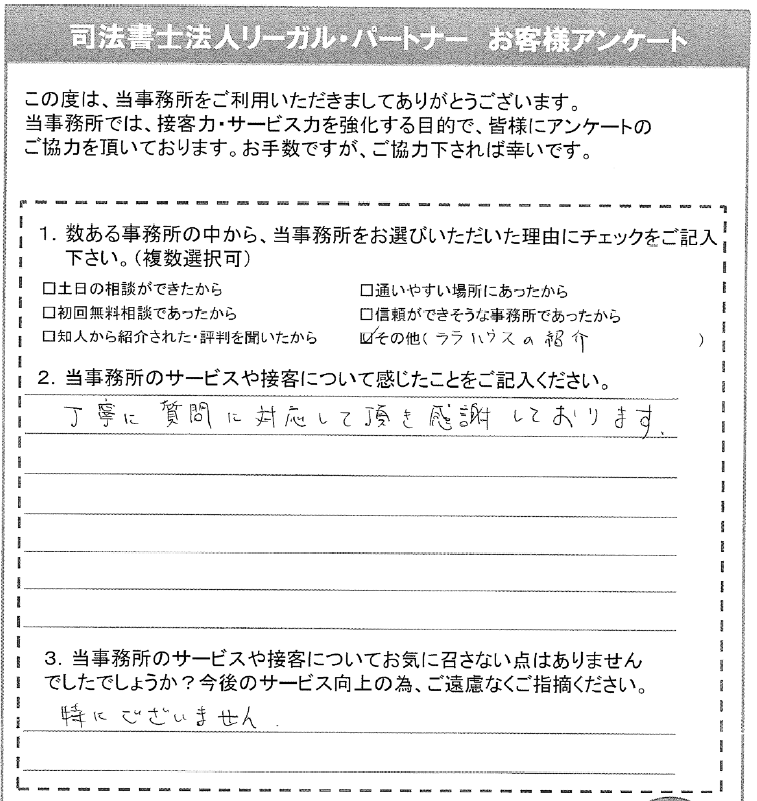 司法書士法人リーガル・パートナー お客様アンケート
この度は、当事務所をご利用いただきましてありがとうございます。
当事務所では、接客力・サービス力を強化する目的で、皆様にアンケートの
ご協力を頂いております。お手数ですが、ご協力下されば幸いです。
1. 数ある事務所の中から、当事務所をお選びいただいた理由にチェックをご記入
下さい。(複数選択可)
□土日の相談ができたから □通いやすい場所にあったから
□初回無料相談であったから □信頼ができそうな事務所であったから
□知人から紹介された・評判を聞いたから ☑その他(ララハウスの紹介 )
2. 当事務所のサービスや接客について感じたことをご記入ください。
丁寧に質問に対応して頂き感謝しております.
3. 当事務所のサービスや接客についてお気に召さない点はありません
でしたでしょうか?今後のサービス向上の為、ご遠慮なくご指摘ください。
特にございません.